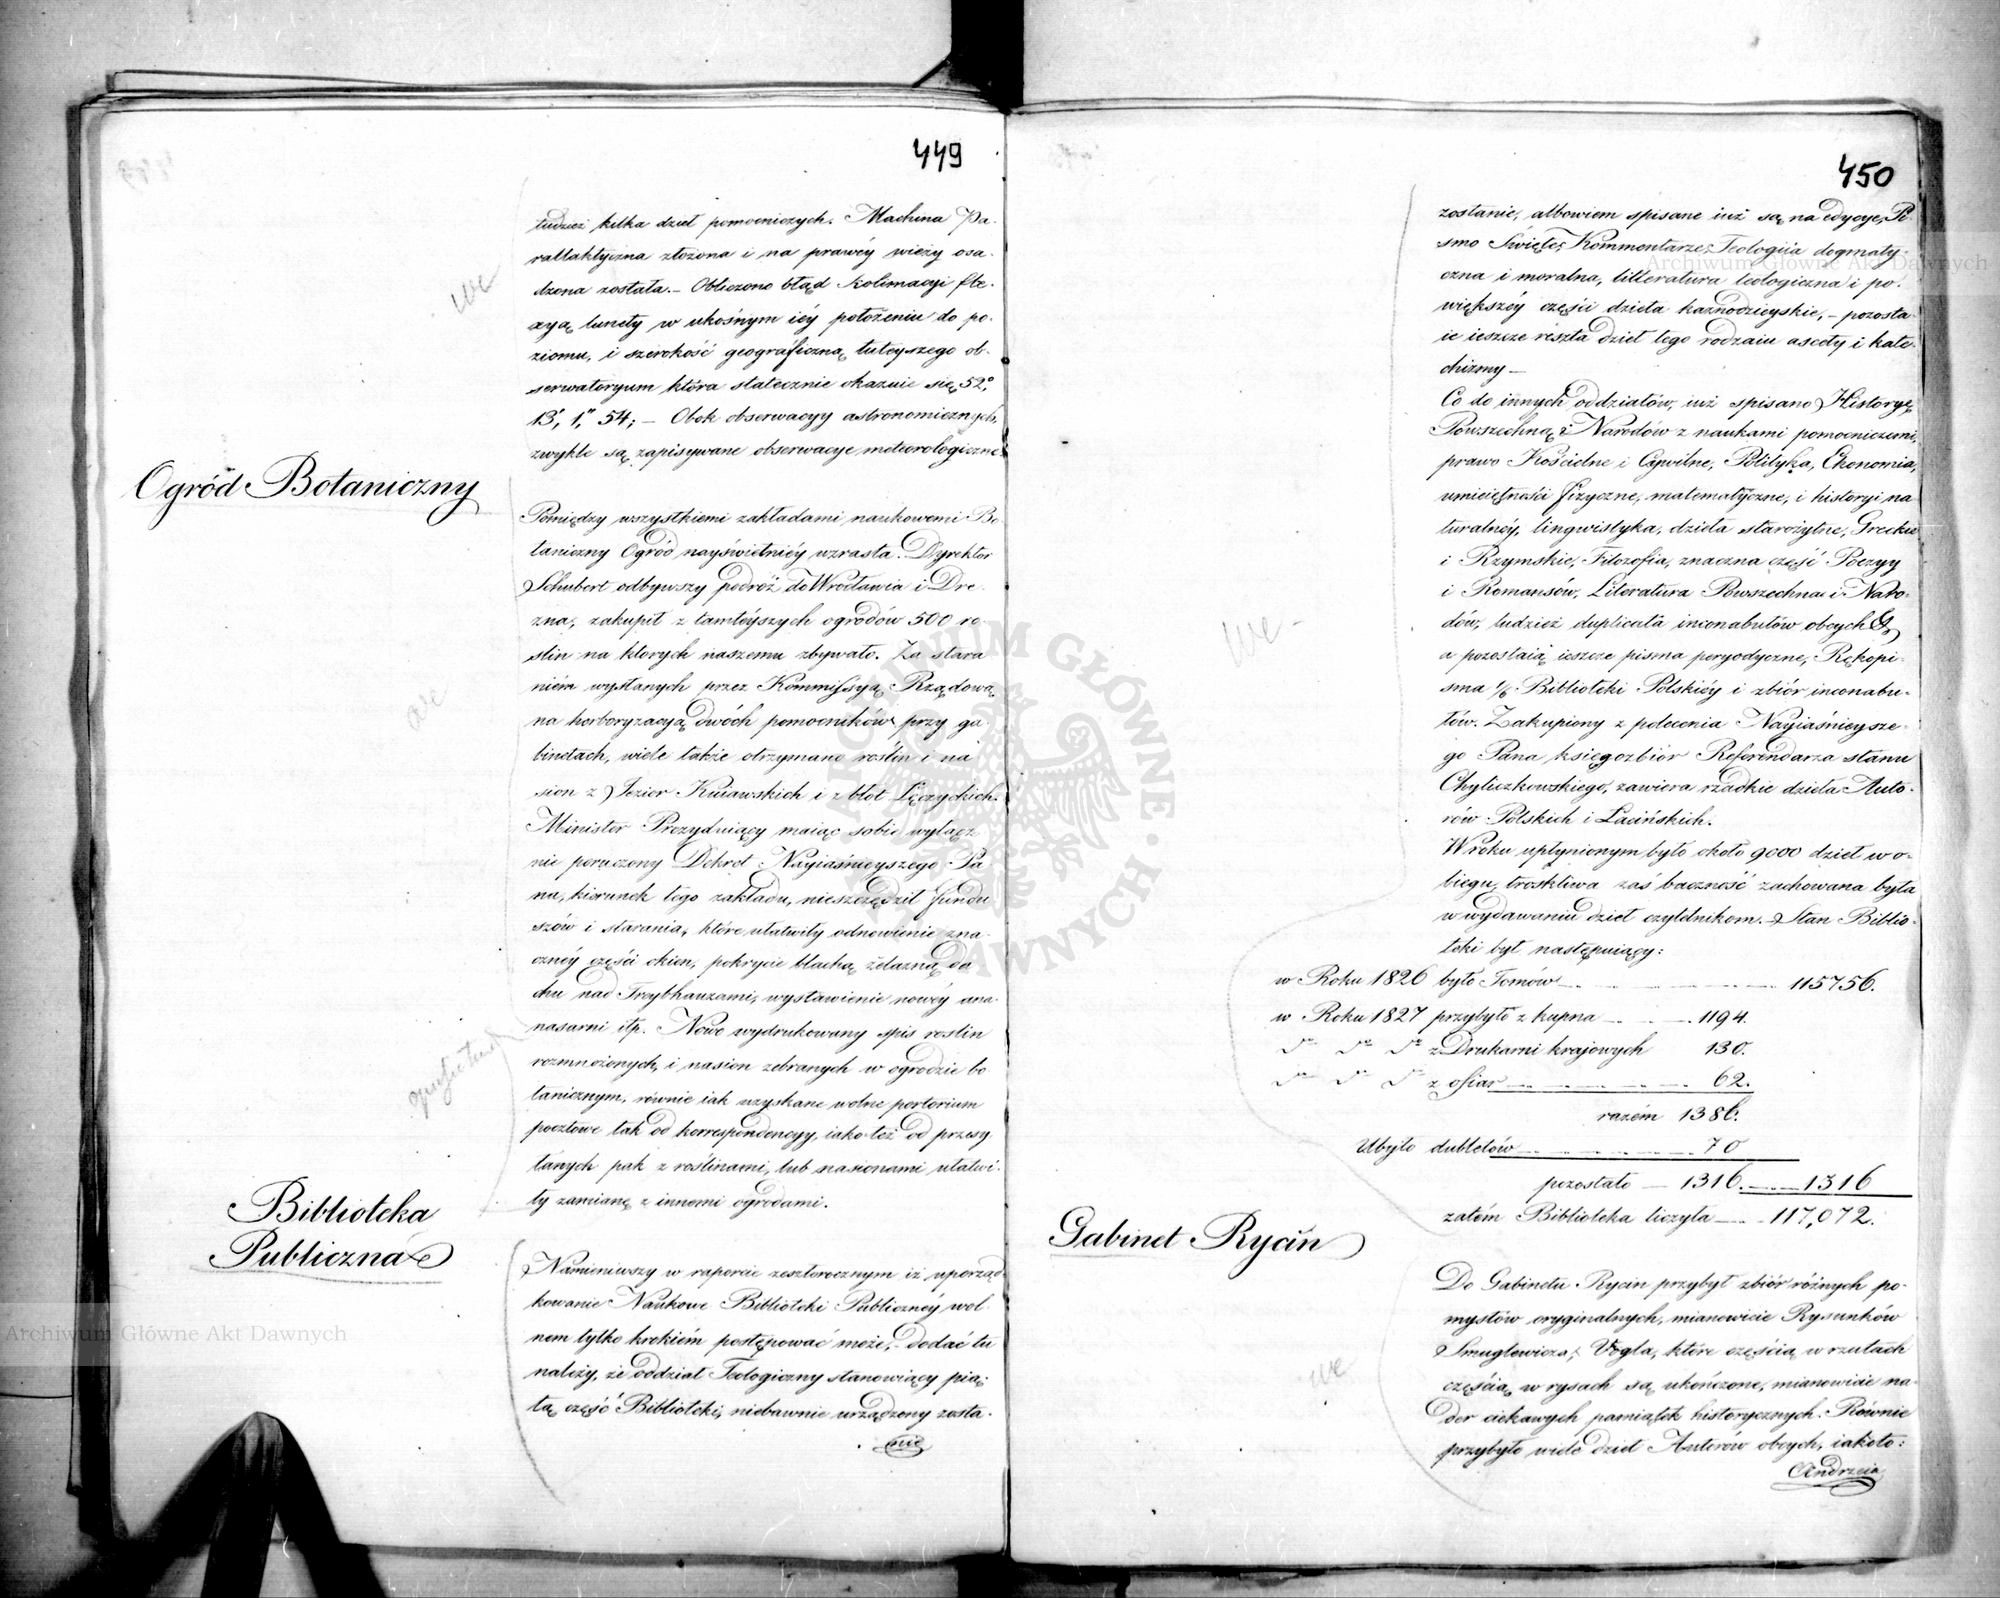 449
tudzież kilka dzieł pomocniczych. Machina Pa-
rallaktyczna złożona i na prawéy wieży osa-
dzona została. – Obliczono błąd kolimacyi fle-
xyą lunety w ukośnym iéy położeniu do po-
ziomu, i szerokość geograficzną tuteyszego ob-
serwatoryum która statecznie okazuie się 52°,
13', 1," 54; – Obok obserwacyy astronomicznych,
zwykle są zapisywane obserwacye meteorologiczne.
Ogród Botaniczny
Pomiędzy wszystkiemi zakładami naukowemi Bo-
taniczny Ogród nayświetniéy wzrasta. Dyrektor
Schubert odbywszy podróż do Wrocławia i Dre-
zna, zakupił z tamtéyszych ogrodów 500 ro-
slin na których naszemu zbywało. Za stara
niém wysłanych przez Kommissyą Rządową
na herboryzacyą dwóch pomocników przy ga-
binetach, wiele także otrzymano roślin i na
sion z Jezior Kuiawskich i z błot Łęczyckich.
Minister Prezyduiący maiąc sobie wyłącz
nie poruczony Dekret Nayiaśnieyszego Pa
na, kierunek tego zakładu, nieszczędził fundu
szów i starania, które ułatwiły odnowienie zna-
cznéy części okien, pokrycie blachą żelazną da
chu nad Treybhauzami, wystawienie nowéy ana-
nasarni itp. Nowo wydrukowany spis roslin
rozmnożonych, i nasion zebranych w ogrodzie bo
tanicznym, równie iak uzyskane wolne portorium
pocztowe tak od korrespondencyy, iako też od przesy
łanych pak z roślinami, lub nasionami ułatwi-
ły zamianę z innemi ogrodami.
Biblioteka
Publiczna
Namieniwszy w raporcie zeszłorocznym iż uporząd-
kowanie Naukowe Biblioteki Publicznéy wol-
nem tylko krokiém postępować może, – dodać tu
należy, że oddział Teologiczny stanowiący pią-
tą część Biblioteki, niebawnie urządzony zosta-
nie
450
zostanie, albowiem spisane iuż są na edycye, Pi-
smo Święte, Kommentarze, Teologiia dogmaty-
czna i moralna, litteratura teologiczna i po-
większéy części dzieła kaznodzieyskie, – pozosta-
ie ieszcze részta dzieł tego rodzaiu ascety i kate-
chizmy –
Co do innych oddziałów, iuż spisano Historyę
Powszechną i Narodów z naukami pomocniczemi,
prawo Kościelne i Cywilne, Polityka, Ekonomia,
umieiętności fizyczne, matematyczne, i historyi na-
turalnéy, lingwistyka, dzieła starożytne, Greckie
i Rzymskie, Filozofia, znaczna część Poezyy
i Romansów, Literatura Powszechna i Naro-
dów, tudzież duplicata inconabułów obcych &,
a pozostaią ieszcze pisma peryodyczne, Rękopi-
sma Biblioteki Polskiéy i zbiór inconabu-
łów. Zakupiony z polecenia Nayiaśnieysze-
go Pana księgozbiór Referendarza stanu
Chyliczkowskiego, zawiera rzadkie dzieła Auto-
rów Polskich i Łacińskich.
W roku upłynionym było około 9000 dzieł w o-
biegu, troskliwa zaś baczność zachowana była
w wydawaniu dzieł czytelnikom. Stan Biblio-
teki był następuiący:
w Roku 1826 było Tomów 115756.
w Roku 1827 przybyło z kupna 1194.
z Drukarni krajowych 130.
z ofiar 62.
razém 1386.
Ubyło dubletów 70
pozostało 1316. 1316
zatém Biblioteka liczyła 117,072.
Gabinet Rycin
Do Gabinetu Rycin przybył zbiór różnych po-
mysłów oryginalnych, mianowicie Rysunków
Smuglewicza, Vogla, które częścią w rzutach
częścią w rysach są ukończone, mianowicie na-
der ciekawych pamiątek historycznych. Równie
przybyło wiele dzieł Autorów obcych, iakoto:
Andrzeia
Archiwum Główne Akt Dawnych
Archiwum Główne Akt Dawnych
ARCHIWUM GŁÓWNE AKT DAWNYCH